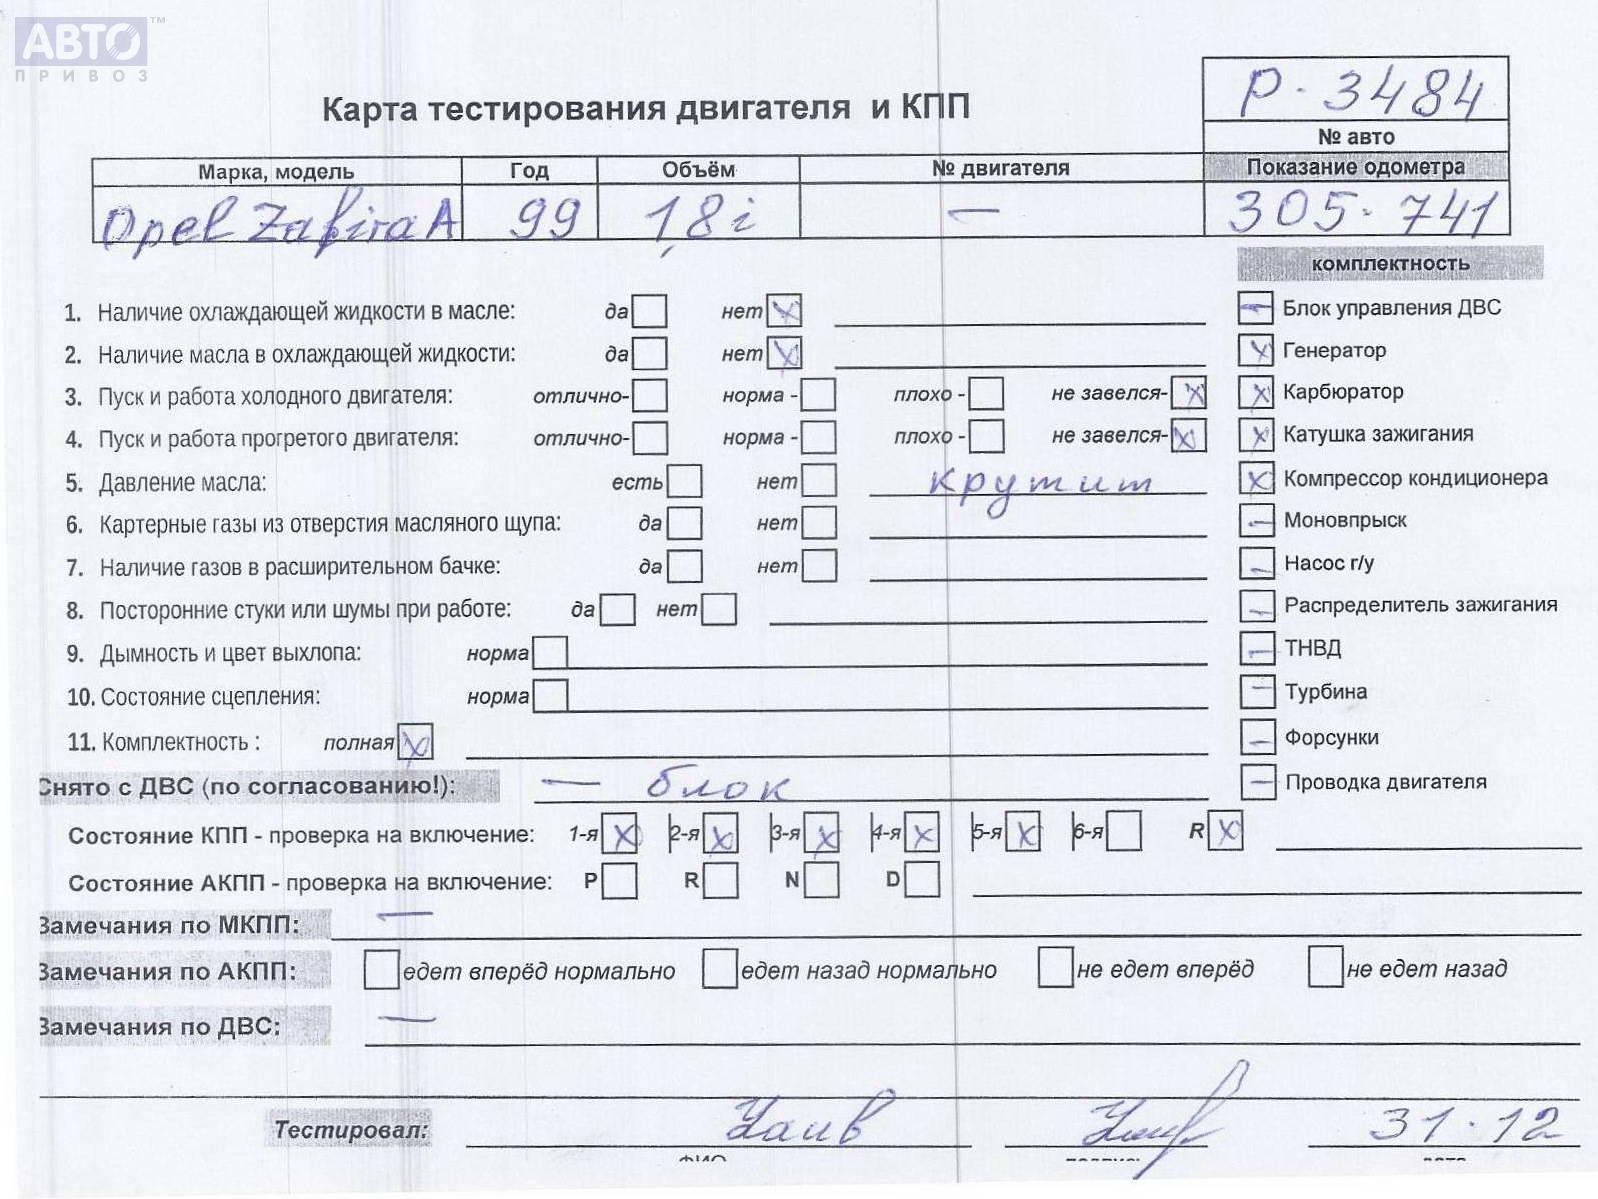 АВТО™
ПРИВОЗ
Карта тестирования двигателя и КПП
Р-3484
№ авто
Марка, модель Год Объём № двигателя Показание одометра
Opel Zafira A 99 1,8i — 305-741
комплектность
1. Наличие охлаждающей жидкости в масле: да нет X
Блок управления ДВС
2. Наличие масла в охлаждающей жидкости: да нет X
X Генератор
3. Пуск и работа холодного двигателя: отлично- норма - плохо - не завелся- X
X Карбюратор
4. Пуск и работа прогретого двигателя: отлично- норма - плохо - не завелся- X
X Катушка зажигания
5. Давление масла: есть нет крутит
X Компрессор кондиционера
6. Картерные газы из отверстия масляного щупа: да нет
— Моновпрыск
7. Наличие газов в расширительном бачке: да нет
— Насос г/у
8. Посторонние стуки или шумы при работе: да нет
— Распределитель зажигания
9. Дымность и цвет выхлопа: норма
— ТНВД
10. Состояние сцепления: норма
— Турбина
11. Комплектность : полная X
— Форсунки
Снято с ДВС (по согласованию!): — блок
— Проводка двигателя
Состояние КПП - проверка на включение: 1-я X 2-я X 3-я X 4-я X 5-я X 6-я R X
Состояние АКПП - проверка на включение: P R N D
Замечания по МКПП: —
Замечания по АКПП: едет вперёд нормально едет назад нормально не едет вперёд не едет назад
Замечания по ДВС: —
Тестировал: 31.12